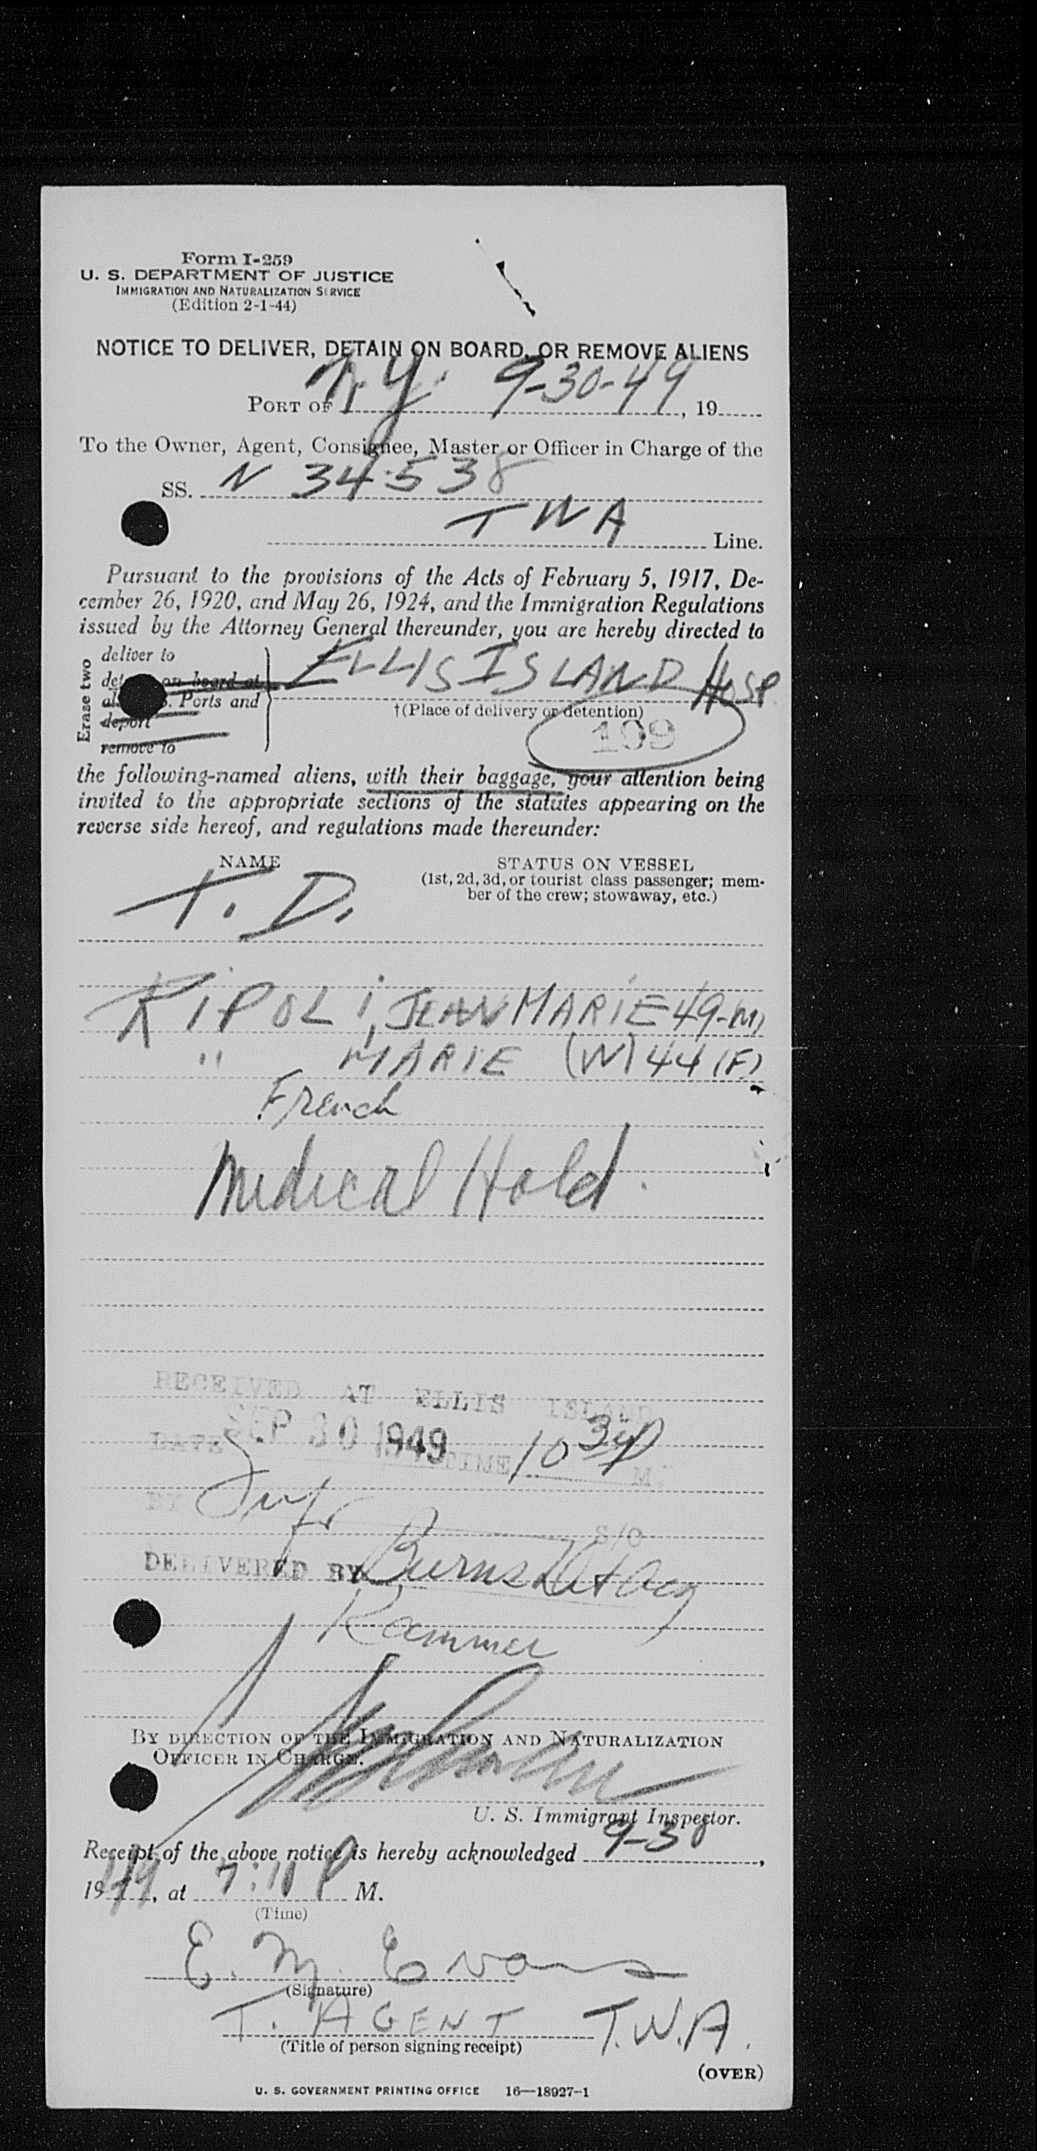 Form I-259
U. S. DEPARTMENT OF JUSTICE
IMMIGRATION AND NATURALIZATION SERVICE
(Edition 2-1-44)
NOTICE TO DELIVER, DETAIN ON BOARD, OR REMOVE ALIENS
PORT OF N.Y. 9-30-49, 19
To the Owner, Agent, Consignee, Master or Officer in Charge of the
SS. N 34538
TWA Line.
Pursuant to the provisions of the Acts of February 5, 1917, De-
cember 26, 1920, and May 26, 1924, and the Immigration Regulations
issued by the Attorney General thereunder, you are hereby directed to
Erase two
deliver to
on board at
Ports and
deport
remove to
ELLIS ISLAND HOSP
†(Place of delivery or detention)
109
the following-named aliens, with their baggage, your attention being
invited to the appropriate sections of the statutes appearing on the
reverse side hereof, and regulations made thereunder:
NAME STATUS ON VESSEL
(1st, 2d, 3d, or tourist class passenger; mem-
ber of the crew; stowaway, etc.)
T. D.
RIPOLI, JEAN MARIE 49-M)
" MARIE (W) 44 (F)
French
Medical Hold.
RECEIVED AT ELLIS ISLAND
DATE SEP 30 1949 TIME 10 P M.
BY S/O
DELIVERED BY Burns Det Acy
Rammer
BY DIRECTION OF THE IMMIGRATION AND NATURALIZATION
OFFICER IN CHARGE.
U. S. Immigrant Inspector.
Receipt of the above notice is hereby acknowledged 9-30,
1949, at 7:11 P M.
(Time)
E. M. Evans
(Signature)
T. AGENT T.W.A.
(Title of person signing receipt)
(OVER)
U. S. GOVERNMENT PRINTING OFFICE 16—18927-1